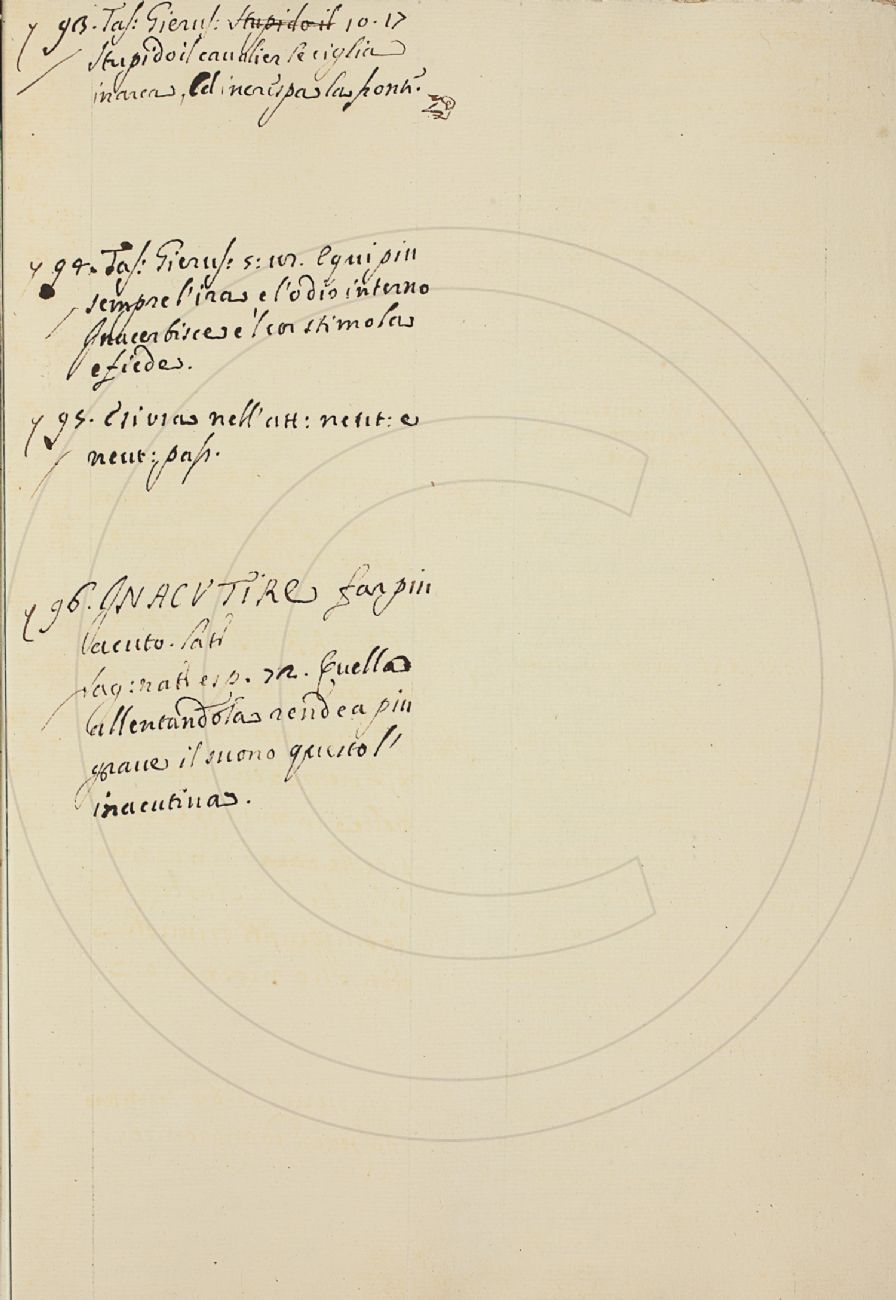 93. Tas: Gierus: Stupido il 10. 17
Stupido il cavalier le ciglia
inarca, ed increspa la front.
94. Tas: Gierus: 5: E qui piu
sempre l'ira e l'odio interno
Inacerbisce e 'l cor stimola
e fiede.
95. nell'att: neut: e
neut: pass.
96. INACUTIRE far piu
acuto.
sag: nat: esp. 72. Quella
allentandola rendea piu
graue il suono questo l'
inacutiua.